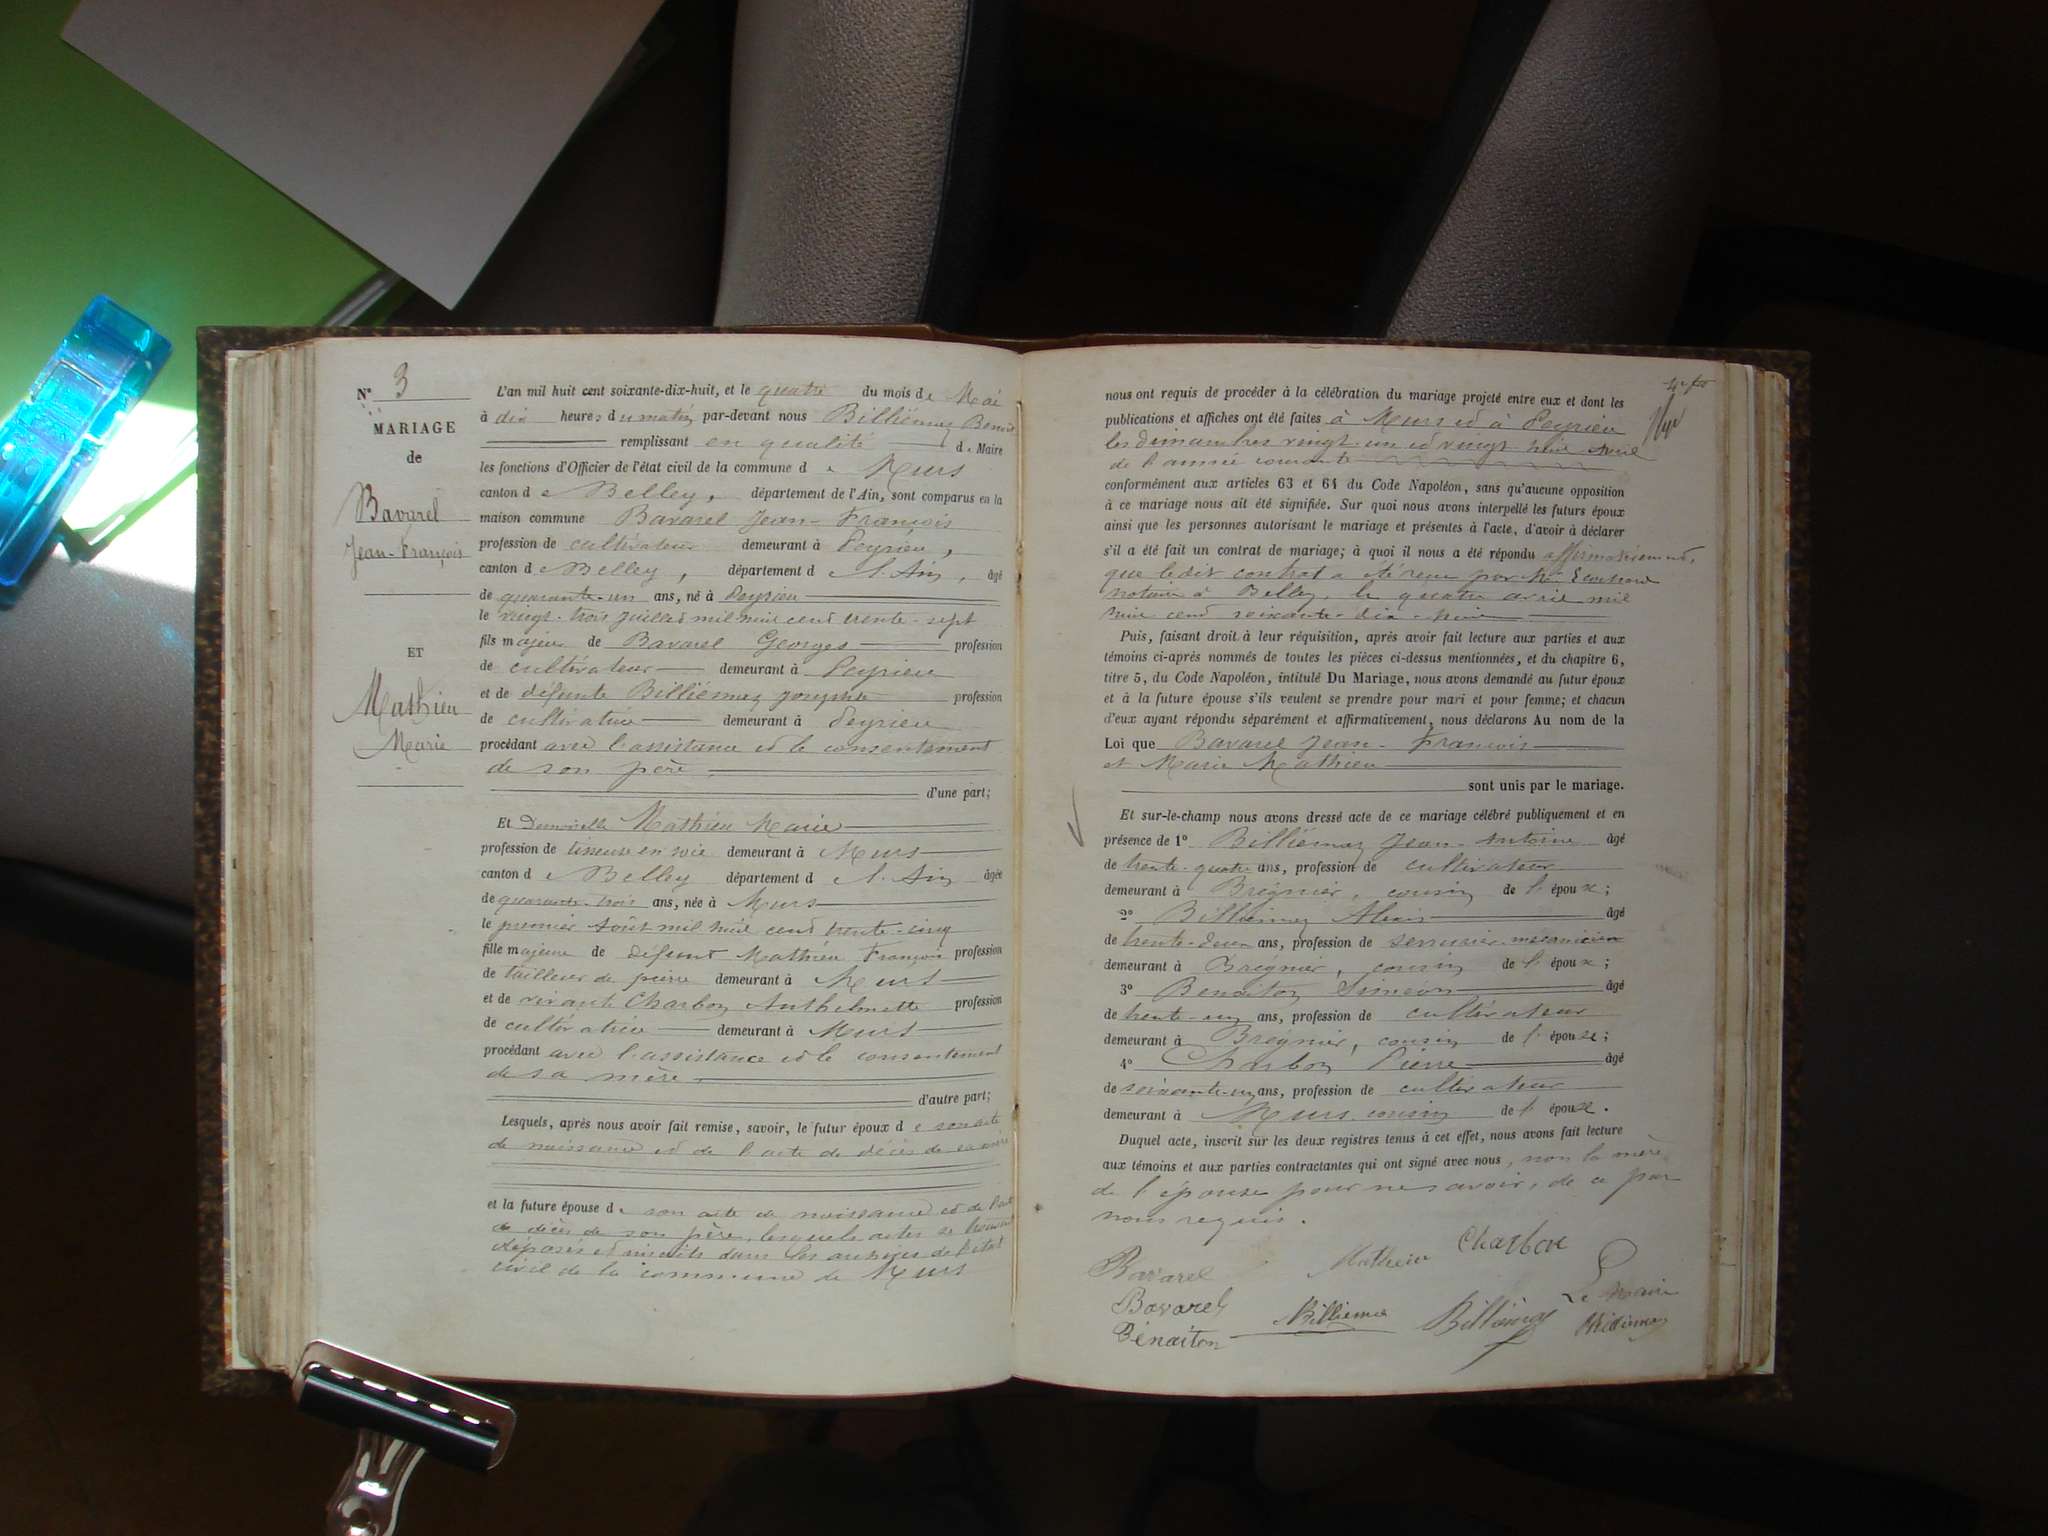 N° 3
MARIAGE
de
Bavarel
Jean-François
ET
Mathieu
Marie
L'an mil huit cent soixante-dix-huit, et le quatre du mois de Mai
à dix heures du matin par-devant nous Billiémaz Benoit
remplissant en qualité de Maire
les fonctions d'Officier de l'état civil de la commune de Murs
canton de Belley, département de l'Ain, sont comparus en la
maison commune Bavarel Jean-François
profession de cultivateur demeurant à Peyrieu,
canton de Belley, département de l'Ain, âgé
de quarante-un ans, né à Peyrieu
le vingt-trois juillet mil huit cent trente-sept
fils majeur de Bavarel Georges profession
de cultivateur demeurant à Peyrieu
et de défunte Billiémaz profession
de cultivatrice demeurant à Peyrieu
procédant avec l'assistance et le consentement
de son père
d'une part;
Et Demoiselle Mathieu Marie
profession de tisseuse en soie demeurant à Murs
canton de Belley département de l'Ain âgée
de quarante-trois ans, née à Murs
le premier Août mil huit cent trente-cinq
fille majeure de défunt Mathieu François profession
de tailleur de pierre demeurant à Murs
et de vivante Charbon Anthelmette profession
de cultivatrice demeurant à Murs
procédant avec l'assistance et le consentement
de sa mère
d'autre part;
Lesquels, après nous avoir fait remise, savoir, le futur époux de son acte
de naissance et de l'acte de décès de sa mère
et la future épouse de son acte de naissance et de l'acte
de décès de son père, lesquels actes se trouvent
déposés et inscrits dans les archives de l'état
civil de la commune de Murs
nous ont requis de procéder à la célébration du mariage projeté entre eux et dont les
publications et affiches ont été faites à Murs et à Peyrieu
les dimanches vingt-un et vingt-huit Avril
de l'année courante
conformément aux articles 63 et 64 du Code Napoléon, sans qu'aucune opposition
à ce mariage nous ait été signifiée. Sur quoi nous avons interpellé les futurs époux
ainsi que les personnes autorisant le mariage et présentes à l'acte, d'avoir à déclarer
s'il a été fait un contrat de mariage; à quoi il nous a été répondu affirmativement,
que ledit contrat a été reçu par Me
notaire à Belley, le quatre avril mil
huit cent soixante-dix-huit
Puis, faisant droit à leur réquisition, après avoir fait lecture aux parties et aux
témoins ci-après nommés de toutes les pièces ci-dessus mentionnées, et du chapitre 6,
titre 5, du Code Napoléon, intitulé Du Mariage, nous avons demandé au futur époux
et à la future épouse s'ils veulent se prendre pour mari et pour femme; et chacun
d'eux ayant répondu séparément et affirmativement, nous déclarons Au nom de la
Loi que Bavarel Jean-François
et Marie Mathieu
sont unis par le mariage.
Et sur-le-champ nous avons dressé acte de ce mariage célébré publiquement et en
présence de 1° Billiémaz Jean-Antoine âgé
de trente-quatre ans, profession de cultivateur
demeurant à Brégnier, cousin de l'époux;
2° Billiémaz Alexis âgé
de trente-deux ans, profession de serrurier-mécanicien
demeurant à Brégnier, cousin de l'époux;
3° Benaiton Siméon âgé
de trente-un ans, profession de cultivateur
demeurant à Brégnier, cousin de l'épouse;
4° Charbon Pierre âgé
de soixante-un ans, profession de cultivateur
demeurant à Murs, cousin de l'épouse.
Duquel acte, inscrit sur les deux registres tenus à cet effet, nous avons fait lecture
aux témoins et aux parties contractantes qui ont signé avec nous, non la mère
de l'épouse pour ne savoir, de ce par
nous requis.
Bavarel Mathieu Charbon
Bavarel Billiemaz Billiémaz Le Maire
Bénaiton Billiémaz